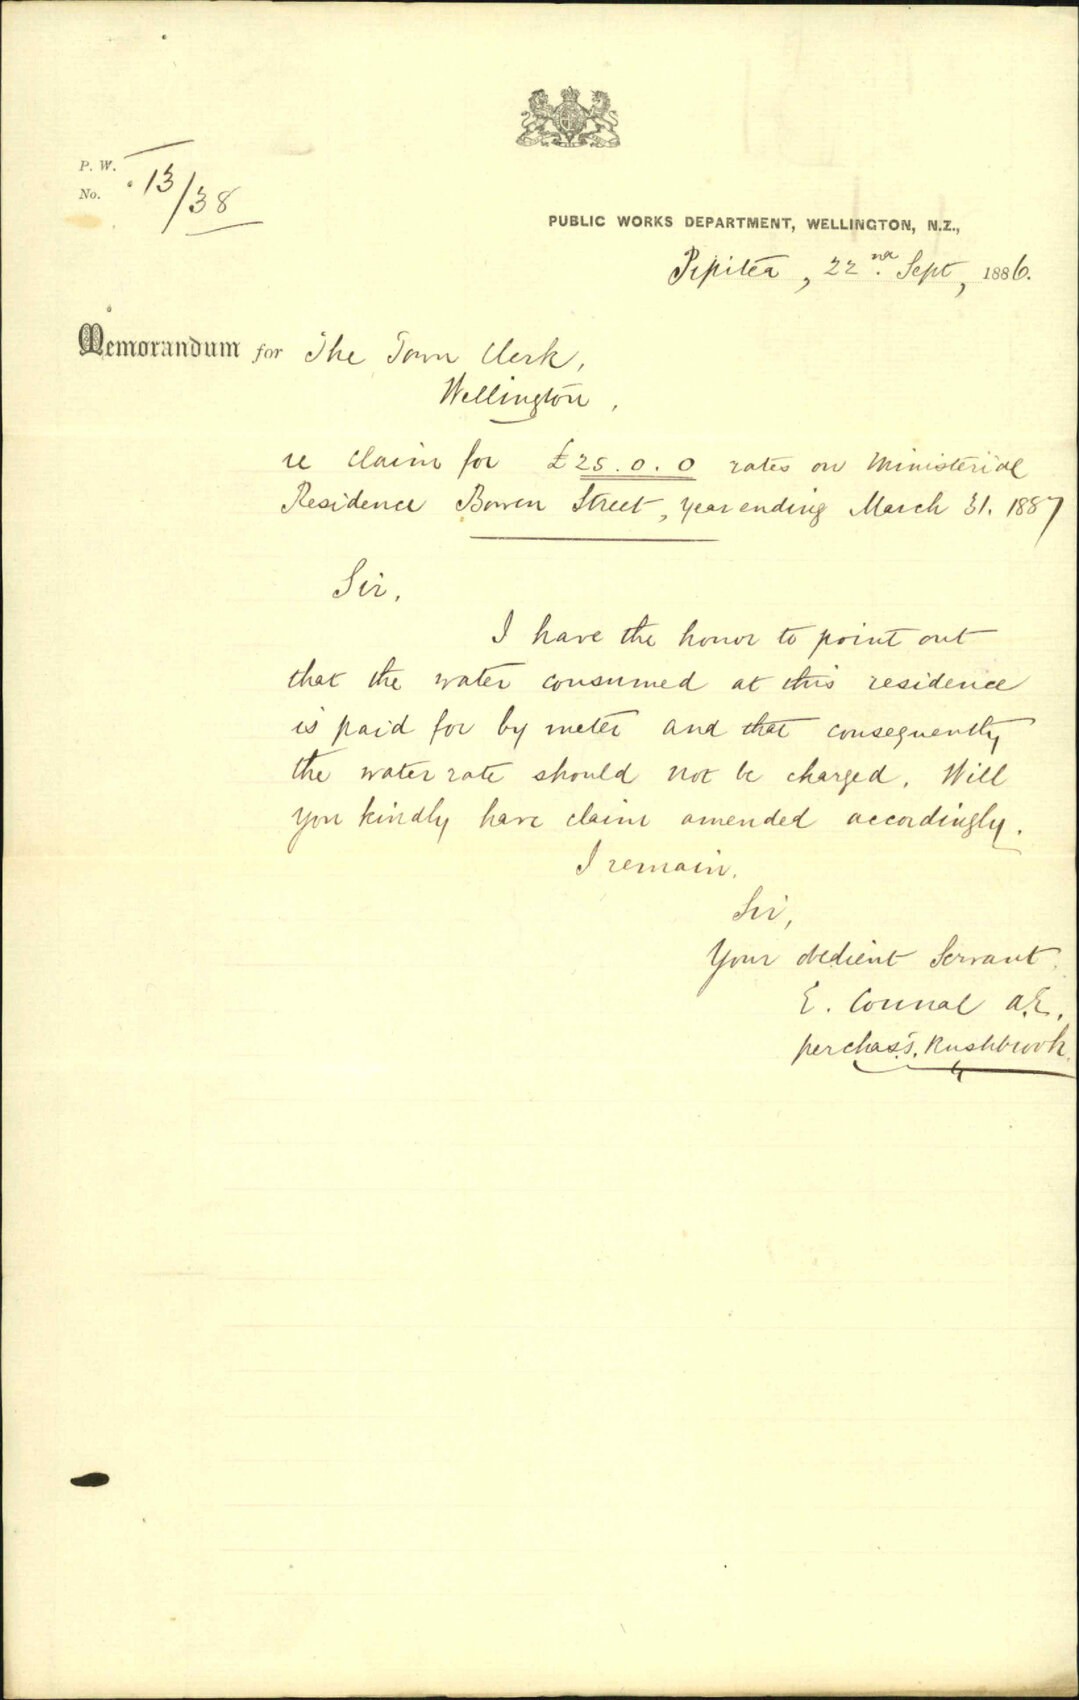 P. W.
No. 13/38
PUBLIC WORKS DEPARTMENT, WELLINGTON, N.Z.,
Pipitea, 22nd Sept, 1886.
Memorandum for The Town Clerk,
Wellington,
re claim for £25.0.0 rates on Ministerial
Residence Bowen Street, year ending March 31. 1887
Sir,
I have the honor to point out
that the water consumed at this residence
is paid for by meter and that consequently
the water rate should not be charged. Will
you kindly have claim amended accordingly.
I remain.
Sir,
Your obedient Servant.
E. Connal A.E.
per Chas. S. Rushbrook